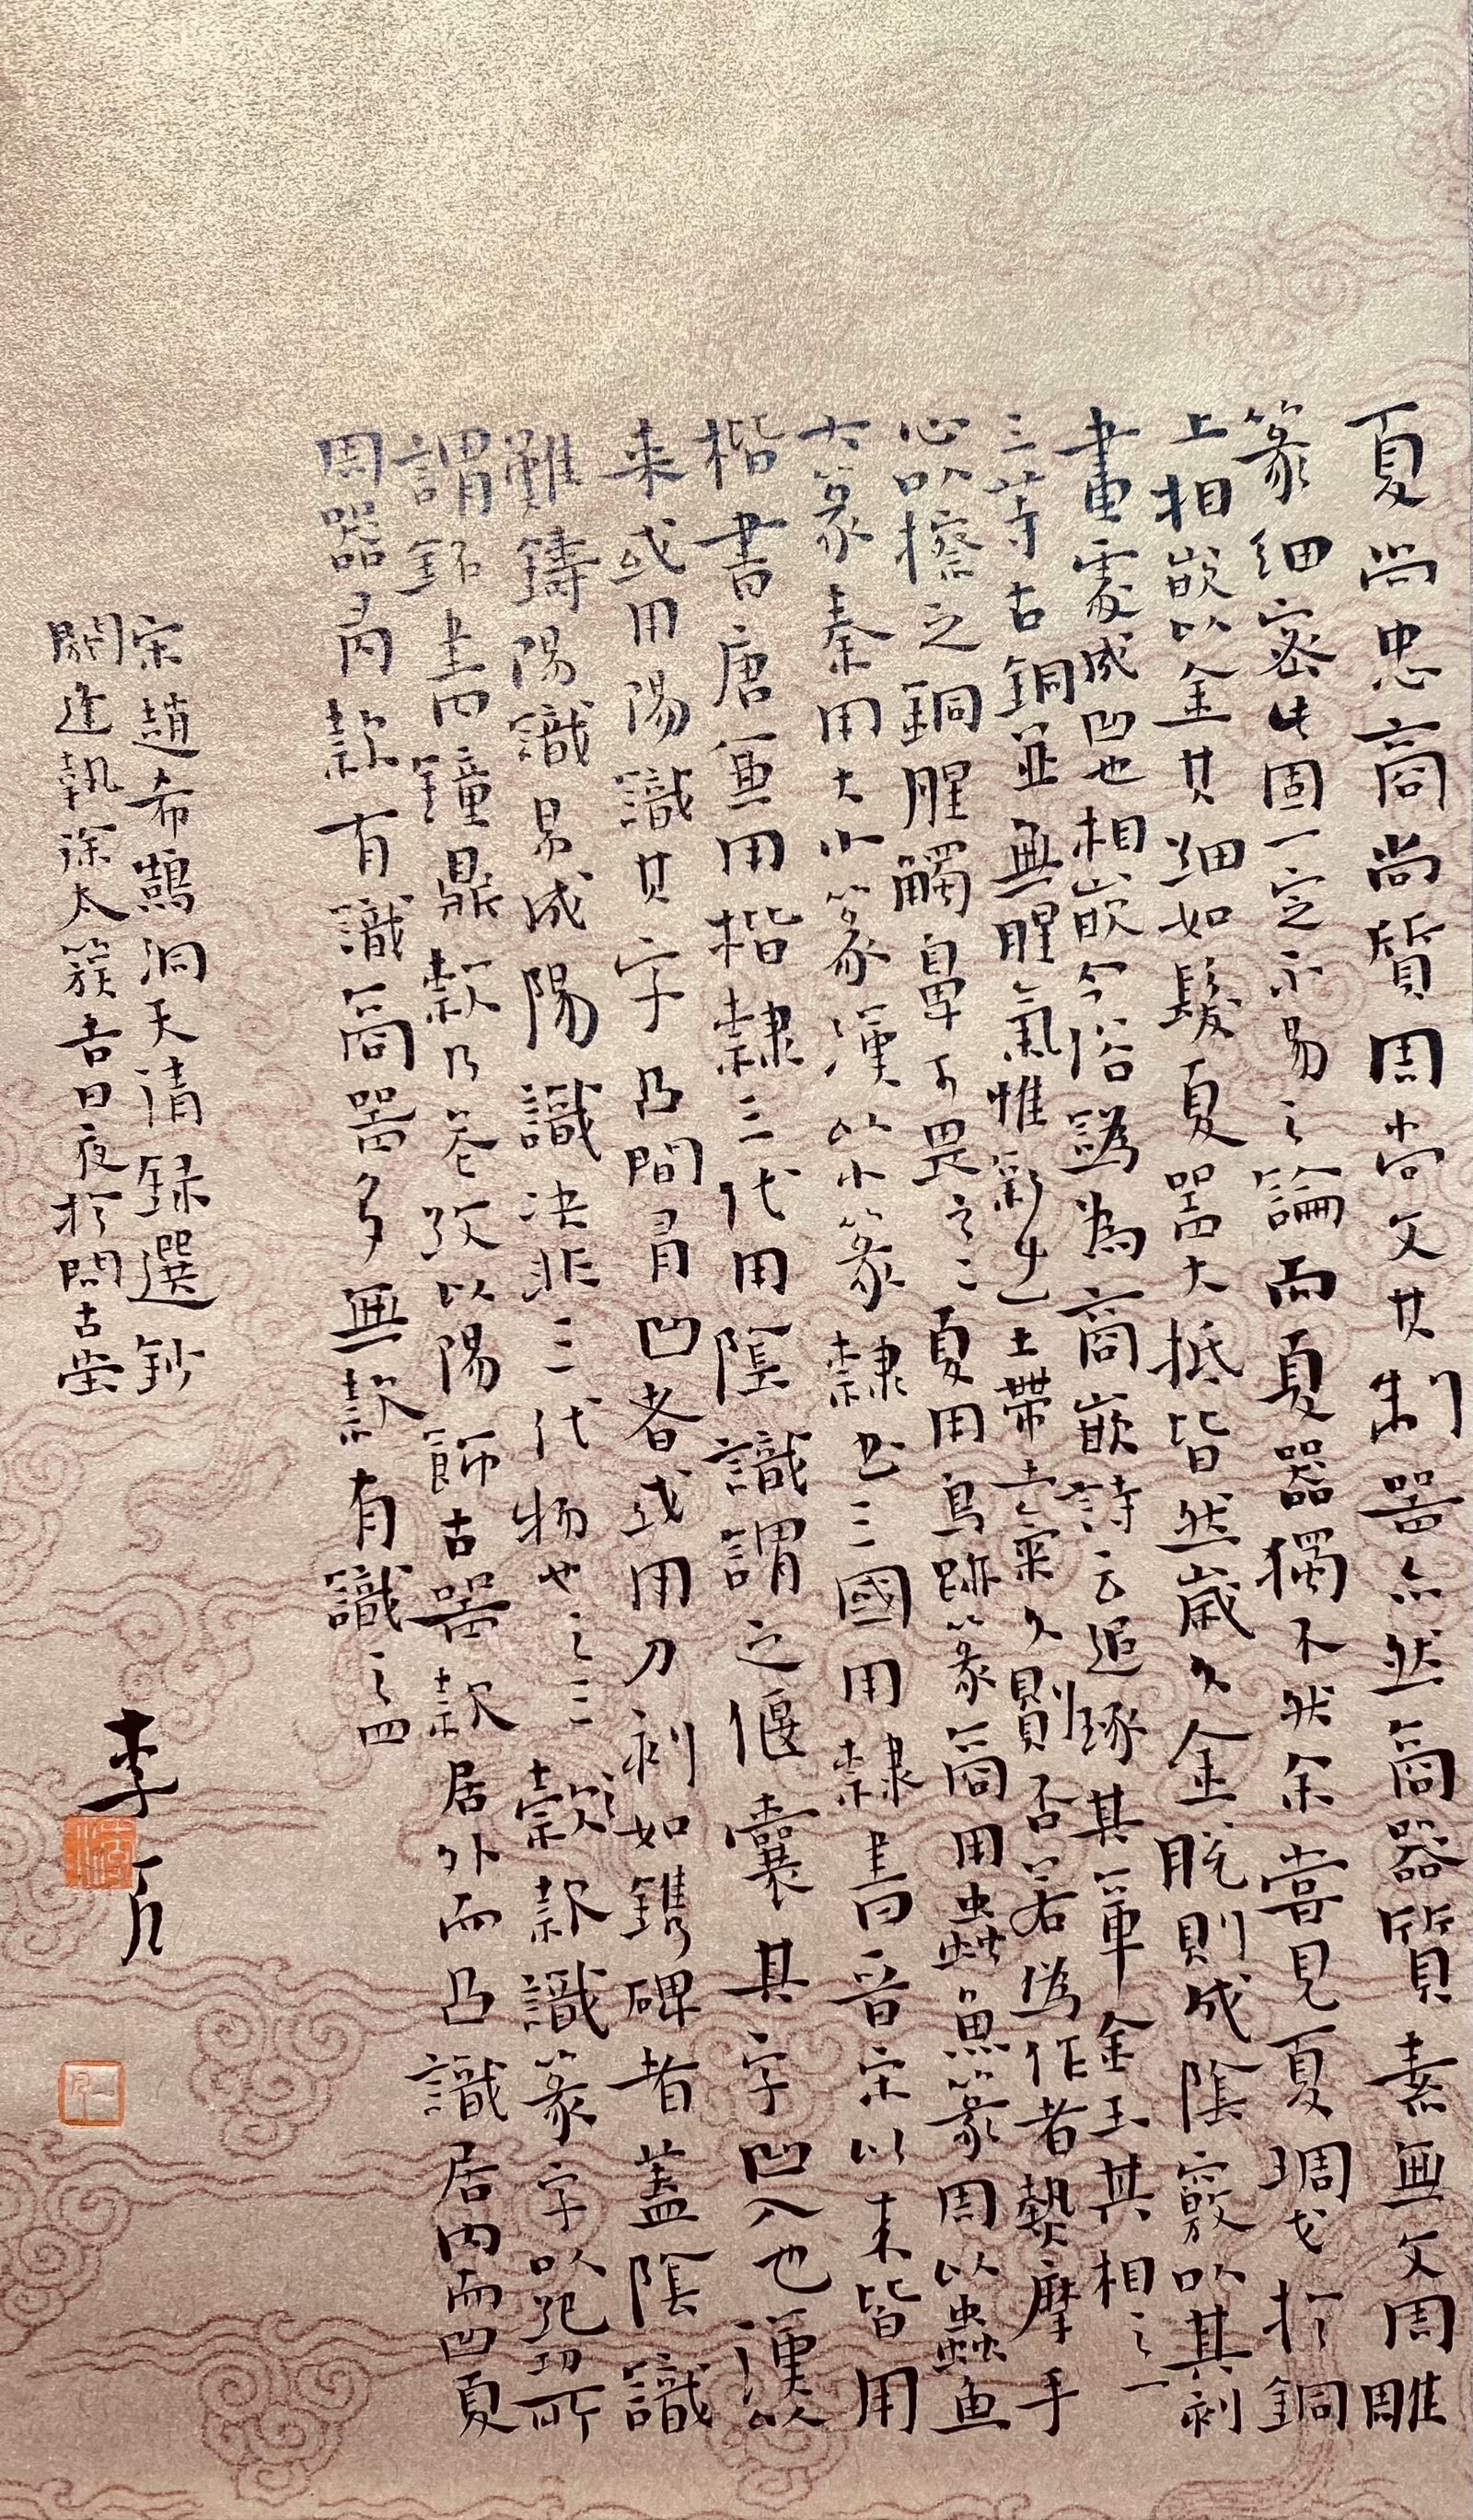 夏尚忠商尚質周尚文其制器亦然商器質素無文周雕
篆細密此固一定不易之論而夏器獨不然余嘗見夏琱戈於銅
上相嵌以金其細如髮夏器大抵皆然歲久金脫則成陰竅以其刻
畫處成凹也相嵌今俗譌為商嵌詩云追琢其章金玉其相之一
三等古銅並無腥氣惟新出土帶土氣久則否若偽作者熱摩手
心以擦之銅腥觸鼻可畏之二夏用鳥跡篆商用蟲魚篆周以蟲魚
大篆秦用大小篆漢以小篆隸書三國用隸書晉宋以來皆用
楷書唐無用楷隸三代用陰識謂之偃囊其字凹入也漢以
來或用陽識其字凸間有凹者或用刀刻如鐫碑者蓋陰識
難鑄陽識易成陽識決非三代物也之三款識篆字以紀功所
謂銘書鐘鼎款乃花紋以陽飾古器款居外而凸識居內而凹夏
周器有款有識商器多無款有識之四
宋趙希鵠洞天清録選鈔
閼逢執徐太簇吉日夜於問古堂
李